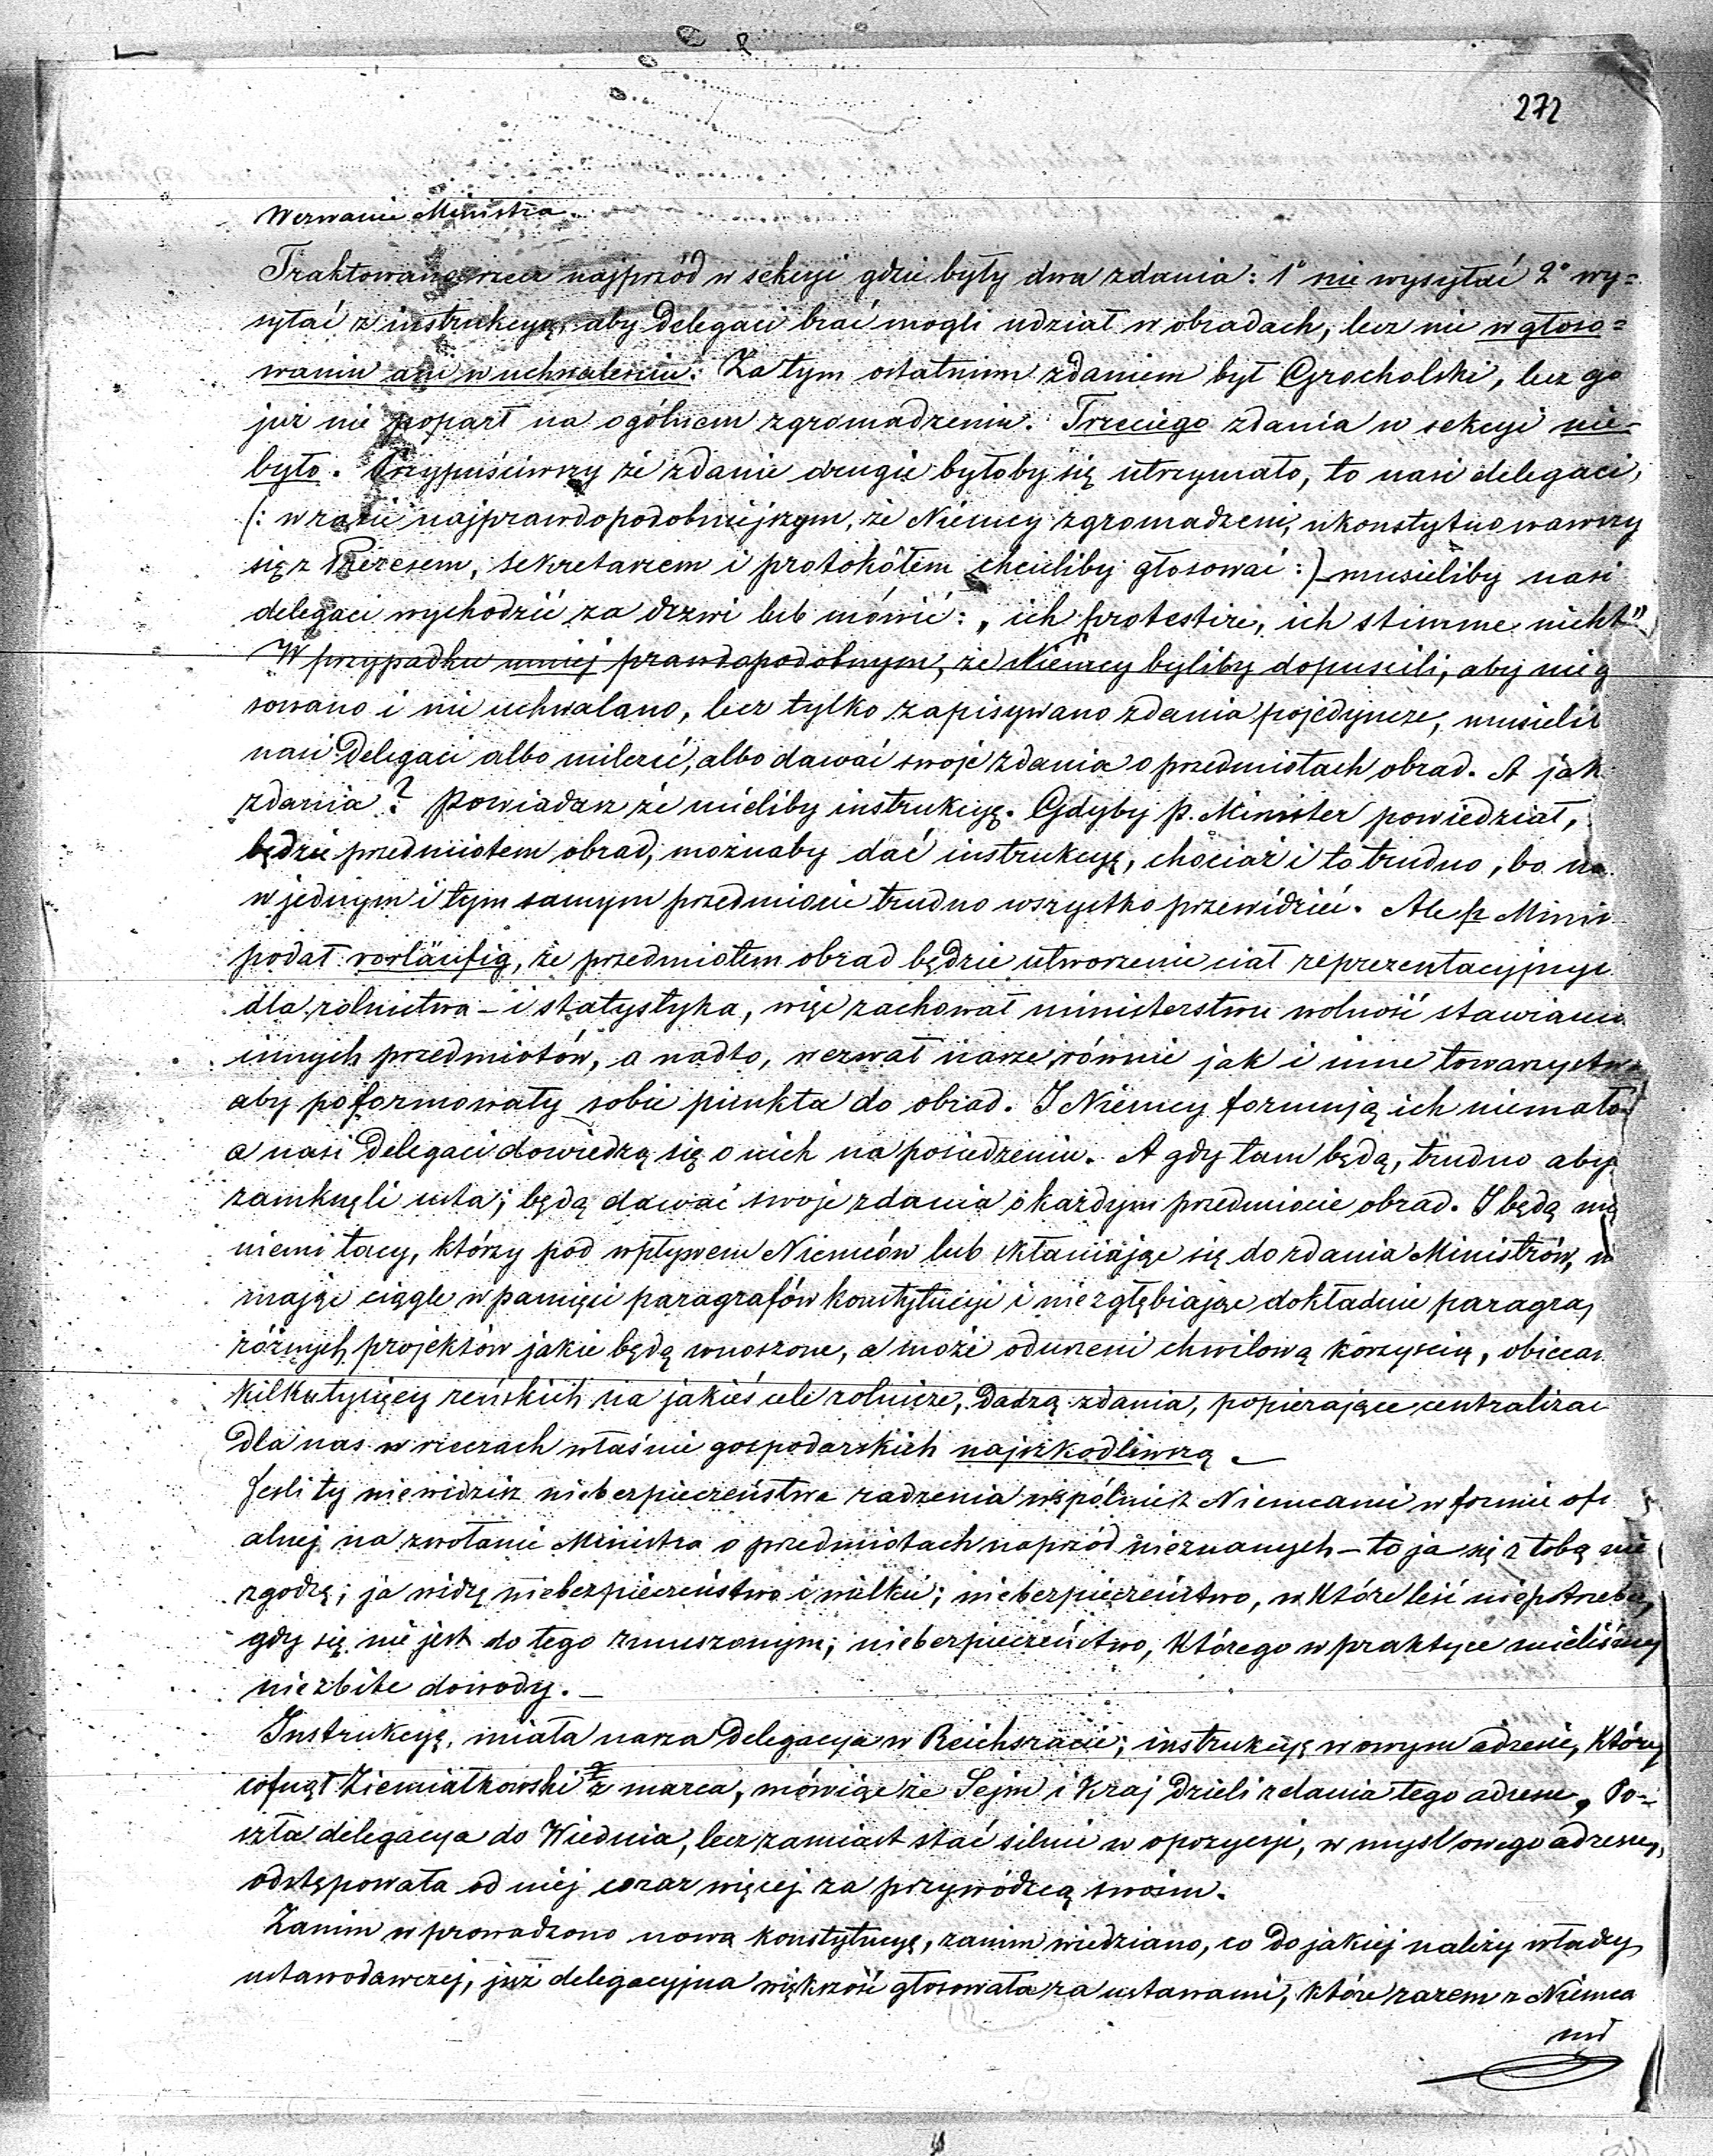 272
Wezwanie Ministra.
Traktowano rzecz najprzód w sekcyi gdzie były dwa zdania: 1° nie wysyłać 2° wy=
syłać z instrukcyą, aby Delegaci brać mogli udział w obradach, lecz nie w głoso=
waniu ani w uchwaleniu. Za tym ostatnim zdaniem był Grocholski, lecz go
już nie poparł na ogólnem zgromadzeniu. Trzeciego zdania w sekcyi nie-
było. Przypuściwszy że zdanie drugie byłoby się utrzymało, to nasi delegaci,
(: w razie najprawdopodobniejszym, że Niemcy zgromadzeni, ukonstytuowawszy
się z Prezesem, sekretarzem i protokółem chcieliby głosować :) musieliby nasi
delegaci wychodzić za drzwi lub mówić: „ich protestire, ich stimme nicht"
W przypadku mniej prawdopodobnym, że Niemcy byliby dopuścili, aby nie g
sowano i nie uchwalano, lecz tylko zapisywano zdania pojedyncze, musielib
nasi Delegaci albo milczeć, albo dawać swoje zdania o przedmiotach obrad. A jak
zdania? Powiadasz że mieliby instrukcyę. Gdyby p. Minister powiedział,
będzie przedmiotem obrad, możnaby dać instrukcyę, chociaż i to trudno, bo na
w jednym i tym samym przedmiocie trudno wszystko przewidzieć. Ale p Minis
podał vorläufig, że przedmiotem obrad będzie utworzenie ciał reprezentacyjnyc
dla rolnictwa - i statystyka, więc zachował ministerstwu wolność stawiania
innych przedmiotów, a nadto, wezwał nasze równie jak i inne towarzystwa
aby poformowały sobie punkta do obrad. I Niemcy formują ich niemało
a nasi Delegaci dowiedzą się o nich na posiedzeniu. A gdy tam będą, trudno aby
zamknęli usta; będą dawać swoje zdania o każdym przedmiocie obrad. I będą mię
niemi tacy, którzy pod wpływem Niemców lub skłaniając się do zdania Ministrów, n
mając ciągle w pamięci paragrafów konstytucyi i niezgłębiając dokładnie paragra,
różnych projektów jakie będą wnoszone, a może odurzeni chwilową korzyścią, obiecan
kilkutysięcy reńskich na jakieś cele rolnicze, Dadzą zdania, popierające centralizac
Dla nas w rzeczach właśnie gospodarskich najszkodliwszą.
Jeśli ty niewidzisz niebezpieczeństwa radzenia wspólnie z Niemcami w formie ofi
alnej na zwołanie Ministra o przedmiotach naprzód nieznanych - to ja się z tobą nie
zgodzę; ja widzę niebezpieczeństwo i wielkie; niebezpieczeństwo, w które leźć niepotrzeba,
gdy się nie jest do tego zmuszonym; niebezpieczeństwo, którego w praktyce mieliśmy
niezbite dowody. —
Instrukcyę, miała nasza Delegacya w Reichsracie; instrukcyę w owym adresie, który
cofnął Ziemiałkowski z marca, mówiąc że Sejm i Kraj Dzieli zdania tego adresu. Po-
szła delegacya do Wiednia, lecz zamiast stać silnie w opozycyi, w myśl owego adresu,
odstępowała od niej coraz więcej za przywódzcą swoim.
Zanim wprowadzono nową konstytucyę, zanim wiedziano, co do jakiej należy władzy
ustawodawczej, już delegacyjna większość głosowała za ustawami, które razem z Niemca
mi